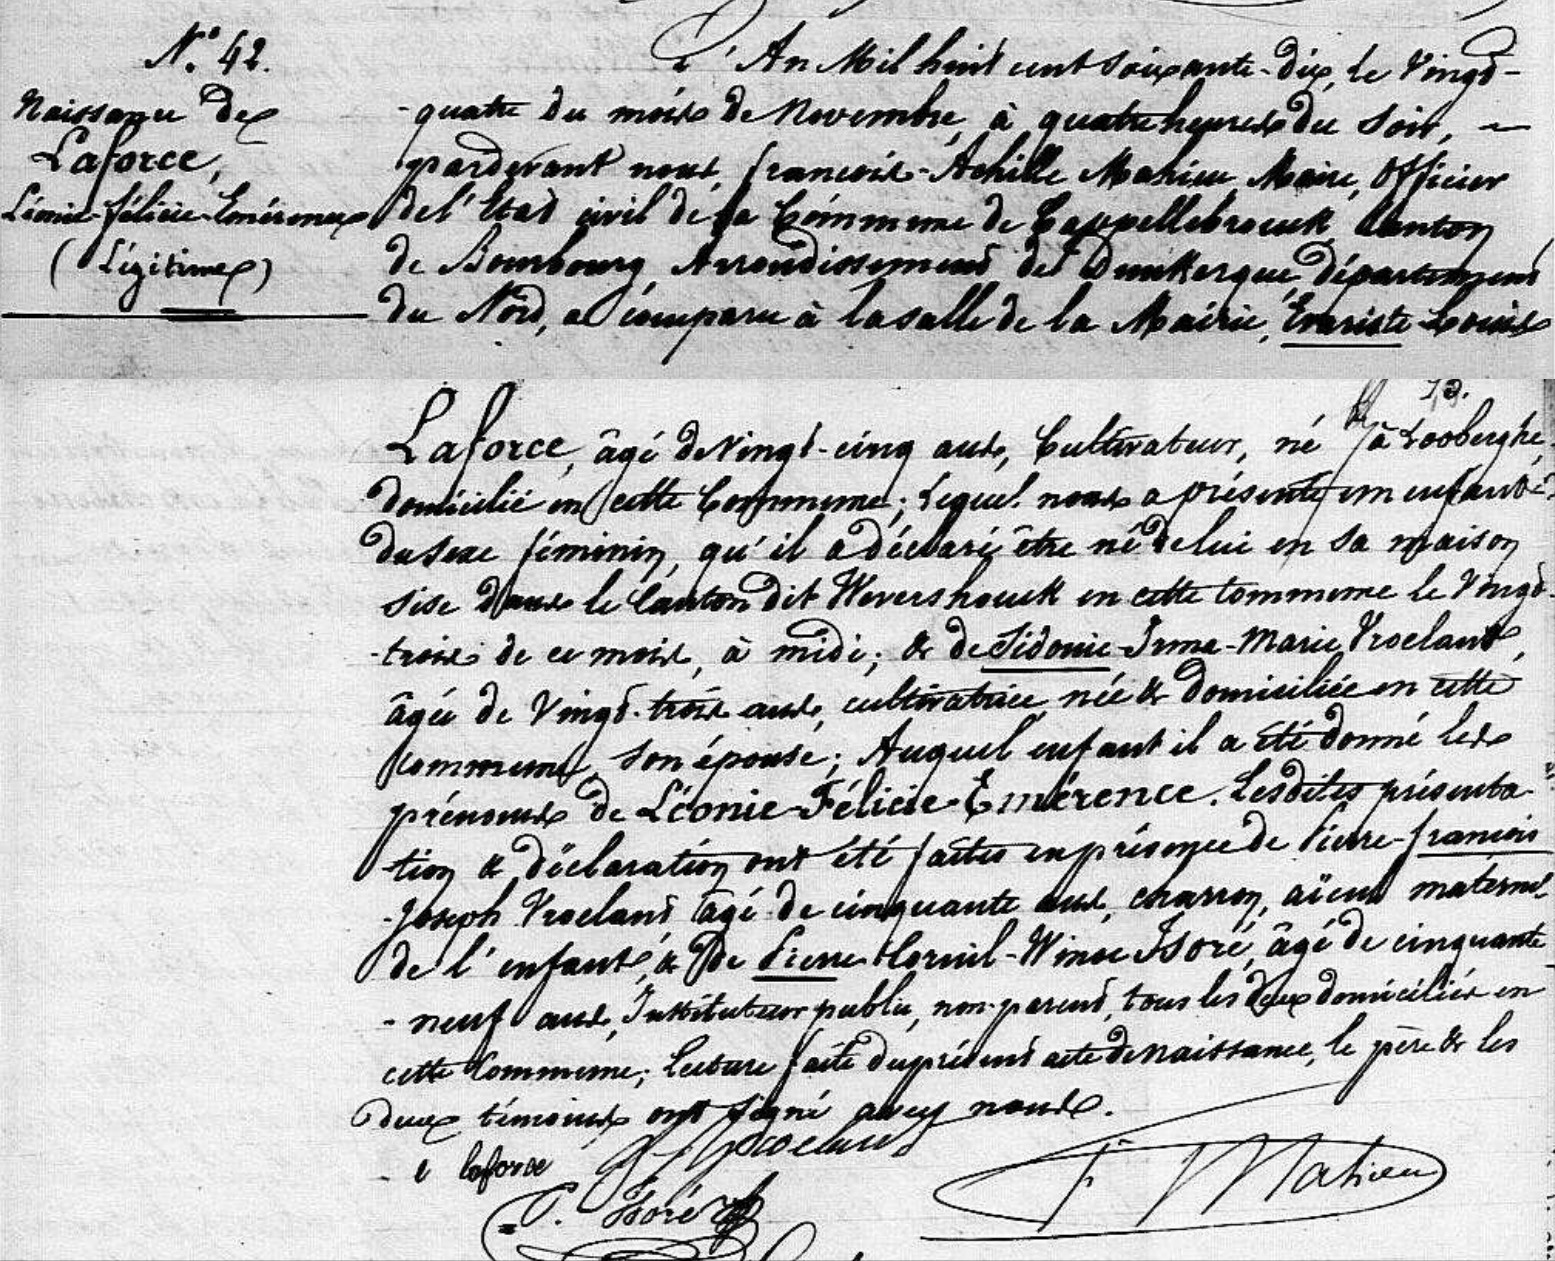 N.° 42.
Naissance de
Laforce,
Léonie-Félicie-Emérence
(Légitime)
L'An Mil huit cent soixante-dix, le Vingt-
-quatre du mois de Novembre, à quatre heures du soir, -
pardevant nous, françois-Achille Mahieu, Maire, Officier
de l'Etat civil de la Commune de Cappellebrouck, Canton
de Bourbourg, Arrondissement de Dunkerque, département
du Nord, a comparu à la salle de la Mairie, Evariste-Louis
Laforce, âgé de Vingt-cinq ans, Cultivateur, né à Looberghe,
domicilié en cette Commune; Lequel nous a présenté un enfant
du sexe féminin, qu'il a déclaré être né de lui en sa maison
sise dans le Canton dit Wevershouck en cette Commune le Vingt-
-trois de ce mois, à midi; & de Sidonie-Irma-Marie Vroelant,
âgée de Vingt-trois ans, cultivatrice, née & domiciliée en cette
Commune, son épouse; Auquel enfant il a été donné les
prénoms de Léonie-Félicie-Emérence. Lesdites présenta-
-tion & déclaration ont été faites en présence de Pierre-françois
-Joseph Vroelant, âgé de cinquante ans, charron, aïeul maternel
de l'enfant, & de Pierre-Cornil-Winoc Isoré, âgé de cinquante
-neuf ans, Instituteur public, non-parent, tous les deux domiciliés en
cette Commune; Lecture faite du présent acte de naissance, le père & les
deux témoins ont signé avec nous.
e laforce
Vroelant
P. Isoré
f Mahieu